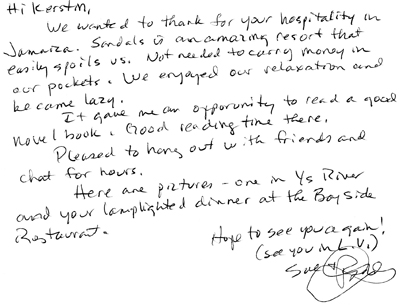 Hi Kerstin,
We wanted to thank for your hospitality in
Jamaica. Sandals is an amazing resort that
easily spoils us. Not needed to carry money in
our pockets. We enjoyed our relaxation and
became lazy.
It gave me an opporunity to read a good
novel book. Good reading time there.
Pleased to hang out with friends and
chat for hours.
Here are pictures - one in Ys River
and your lamplighted dinner at the Bayside
Restaurant.
Hope to see you again!
(see you in L.V.)